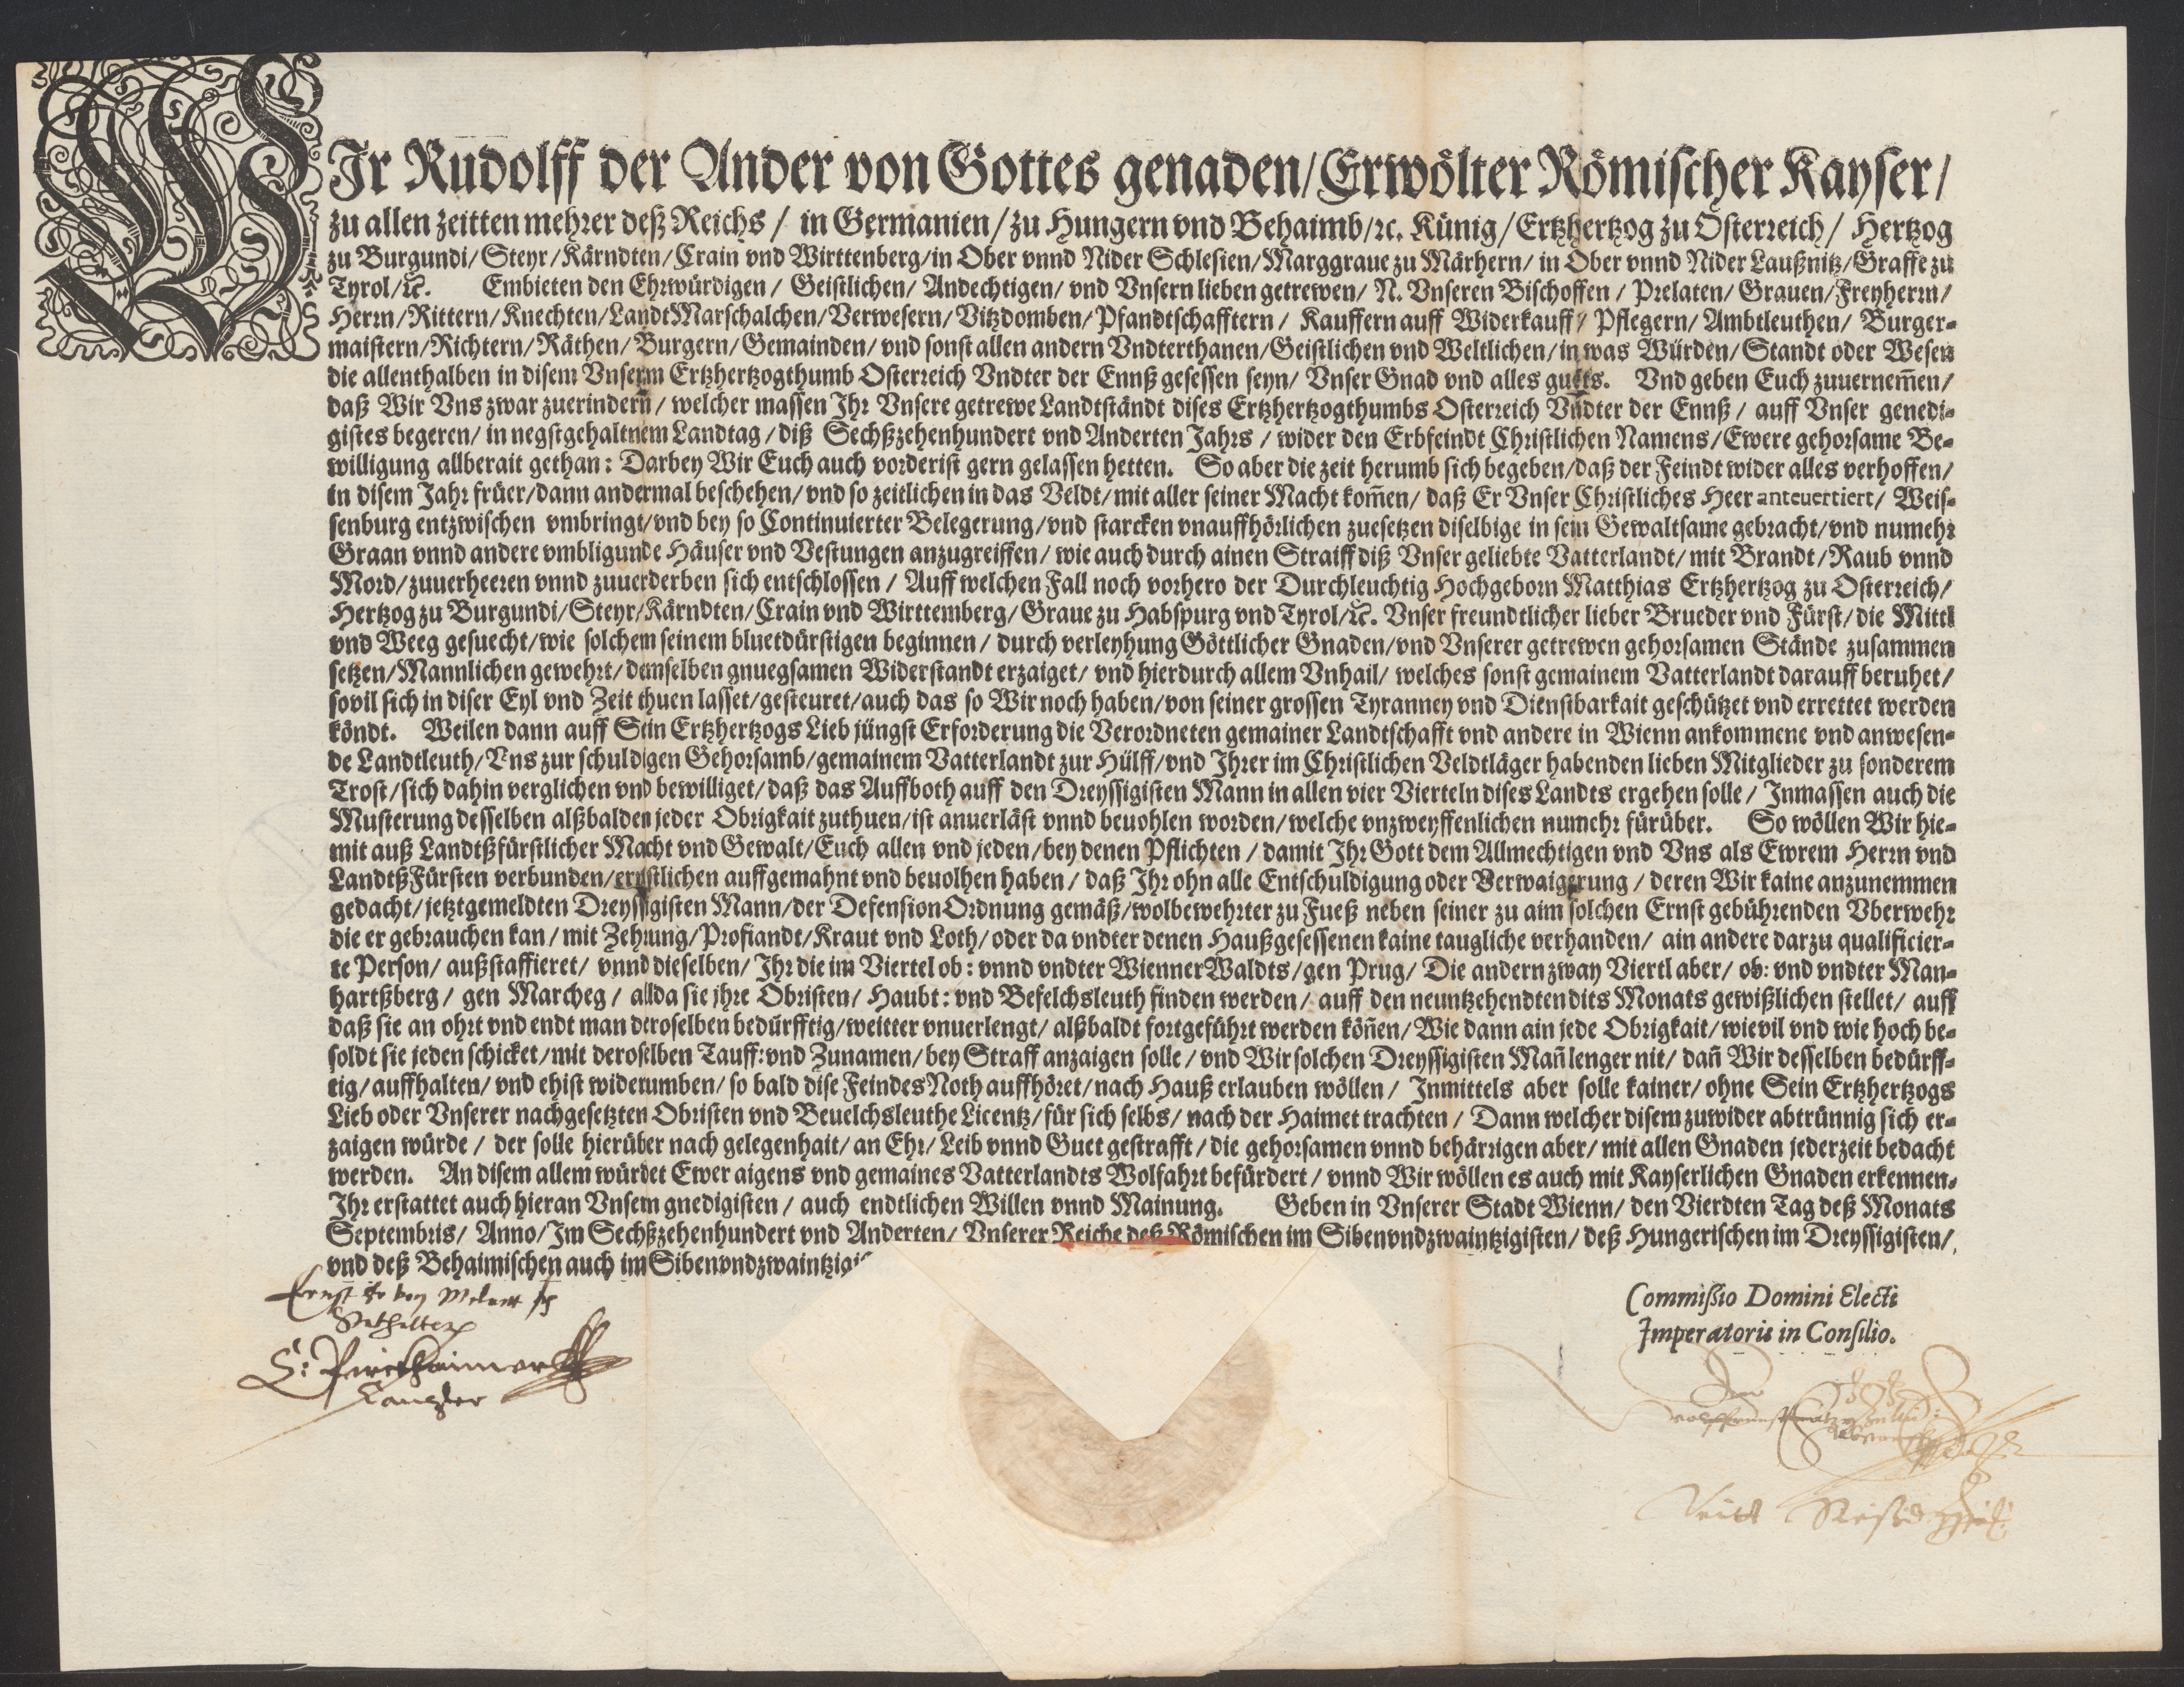 WIr Rudolff der Ander von Gottes genaden/Erwölter Römischer Kayser/
zu allen zeitten mehrer deß Reichs / in Germanien/zu Hungern vnd Behaimb/ꝛc. Künig/Ertzhertzog zu Osterreich/ Hertzog
zu Burgundi/Steyr/Kärndten/Crain vnd Wirttenberg/in Ober vnnd Nider Schlesien/Marggraue zu Märhern/ in Ober vnnd Nider Laußnitz/Graffe zu
Tyrol/ꝛc. Embieten den Ehrwürdigen / Geistlichen/ Andechtigen/ vnd Vnsern lieben getrewen/ N. Vnseren Bischoffen / Prelaten/ Grauen/Freyherrn/
Herrn/Rittern/Knechten/LandtMarschalchen/Verwesern/Vitzdomben/Pfandtschafftern / Kauffern auff Widerkauff/ Pflegern/ Ambtleuthen/ Burger-
maistern/Richtern/Räthen/Burgern/Gemainden/ vnd sonst allen andern Vndterthanen/Geistlichen vnd Weltlichen/in was Würden/Standt oder Wesen
die allenthalben in disem Vnserm Ertzhertzogthumb Osterreich Vndter der Ennß gesessen seyn/ Vnser Gnad vnd alles guets. Vnd geben Euch zuuernem̃en/
daß Wir Vns zwar zuerindern/ welcher massen Ihr Vnsere getrewe Landtständt dises Ertzhertzogthumbs Osterreich Vndter der Ennß / auff Vnser genedi-
gistes begeren/ in negstgehaltnem Landtag / diß Sechßzehenhundert vnd Anderten Jahrs / wider den Erbfeindt Christlichen Namens/Ewere gehorsame Be-
willigung allberait gethan: Darbey Wir Euch auch vorderist gern gelassen hetten. So aber die zeit herumb sich begeben/daß der Feindt wider alles verhoffen/
in disem Jahr früer/dann andermal beschehen/ vnd so zeitlichen in das Veldt/mit aller seiner Macht kom̃en/ daß Er Vnser Christliches Heer anteuertiert/ Weis-
senburg entzwischen vmbringt/vnd bey so Continuierter Belegerung/vnd starcken vnauffhörlichen zuesetzen diselbige in sein Gewaltsame gebracht/vnd numehr
Graan vnnd andere vmbligunde Häuser vnd Vestungen anzugreiffen/ wie auch durch ainen Straiff diß Vnser geliebte Vatterlandt/ mit Brandt/Raub vnnd
Mord/zuuerheeren vnnd zuuerderben sich entschlossen / Auff welchen Fall noch vorhero der Durchleuchtig Hochgeborn Matthias Ertzhertzog zu Osterreich/
Hertzog zu Burgundi/Steyr/Kärndten/Crain vnd Wirttemberg/ Graue zu Habspurg vnd Tyrol/ꝛc. Vnser freundtlicher lieber Brueder vnd Fürst/ die Mittl
vnd Weeg gesuecht/wie solchem seinem bluetdürstigen beginnen / durch verleyhung Göttlicher Gnaden/vnd Vnserer getrewen gehorsamen Stände zusammen
setzen/Mannlichen gewehrt/demselben gnuegsamen Widerstandt erzaiget/ vnd hierdurch allem Vnhail/ welches sonst gemainem Vatterlandt darauff beruhet/
souil sich in diser Eyl vnd Zeit thuen lasset/gesteuret/auch das so Wir noch haben/von seiner grossen Tyranney vnd Dienstbarkait geschützet vnd errettet werden
köndt. Weilen dann auff Sein Ertzhertzogs Lieb jüngst Erforderung die Verordneten gemainer Landtschafft vnd andere in Wienn ankommene vnd anwesen-
de Landtleuth/Vns zur schuldigen Gehorsamb/gemainem Vatterlandt zur Hülff/vnd Ihrer im Christlichen Veldtläger habenden lieben Mitglieder zu sonderem
Trost/sich dahin verglichen vnd bewilliget/daß das Auffboth auff den Dreyssigisten Mann in allen vier Vierteln dises Landts ergehen solle / Inmassen auch die
Musterung desselben alßbalden jeder Obrigkait zuthuen/ist anuerläst vnnd beuohlen worden/welche vnzweyffenlichen numehr fürüber. So wöllen Wir hie-
mit auß Landtßfürstlicher Macht vnd Gewalt/Euch allen vnd jeden/bey denen Pflichten / damit Ihr Gott dem Allmechtigen vnd Vns als Ewrem Herrn vnd
LandtßFürsten verbunden/ernstlichen auffgemahnt vnd beuolhen haben / daß Ihr ohn alle Entschuldigung oder Verwaigerung / deren Wir kaine anzunemmen
gedacht/jetztgemeldten Dreyssigisten Mann/der DefensionOrdnung gemäß/wolbewehrter zu Fueß neben seiner zu aim solchen Ernst gebührenden Vberwehr
die er gebrauchen kan/ mit Zehrung/Profiandt/Kraut vnd Loth/oder da vndter denen Haußgesessenen kaine taugliche verhanden/ ain andere darzu qualificier-
te Person/ außstaffieret/ vnnd dieselben/ Ihr die im Viertel ob: vnnd vndter WiennerWaldts/gen Prug/ Die andern zway Viertl aber/ ob: vnd vndter Man-
hartßberg / gen Marcheg / allda sie jhre Obristen/ Haubt: vnd Befelchsleuth finden werden / auff den neuntzehendten dits Monats gewißlichen stellet/ auff
daß sie an ohrt vnd endt man deroselben bedürfftig/weitter vnuerlengt/ alßbaldt fortgeführt werden köñen/ Wie dann ain jede Obrigkait/wievil vnd wie hoch be-
soldt sie jeden schicket/mit deroselben Tauff:vnd Zunamen/ bey Straff anzaigen solle / vnd Wir solchen Dreyssigisten Mañ lenger nit/ dañ Wir desselben bedürff-
tig/auffhalten/ vnd ehist widerumben/ so bald dise FeindesNoth auffhöret/nach Hauß erlauben wöllen / Inmittels aber solle kainer/ ohne Sein Ertzhertzogs
Lieb oder Vnserer nachgesetzten Obristen vnd Beuelchsleuthe Licentz/für sich selbs/ nach der Haimet trachten / Dann welcher disem zuwider abtrünnig sich er-
zaigen würde / der solle hierüber nach gelegenhait/ an Ehr/ Leib vnnd Guet gestrafft / die gehorsamen vnnd behärrigen aber/ mit allen Gnaden jederzeit bedacht
werden. An disem allem würdet Ewer aigens vnd gemaines Vatterlandts Wolfahrt befürdert / vnnd Wir wöllen es auch mit Kayserlichen Gnaden erkennen.
Ihr erstattet auch hieran Vnsern gnedigisten / auch endtlichen Willen vnnd Mainung. Geben in Vnserer Stadt Wienn/ den Vierdten Tag deß Monats
Septembris/ Anno/Im Sechßzehenhundert vnd Anderten/ Vnserer Reiche deß Römischen im Sibenvndzwaintzigisten/ deß Hungerischen im Dreyssigisten/
vnd deß Behaimischen auch im Sibenvndzwaintzigis
Commissio Domini Electi
Imperatoris in Consilio.
Ernst
Kanzler